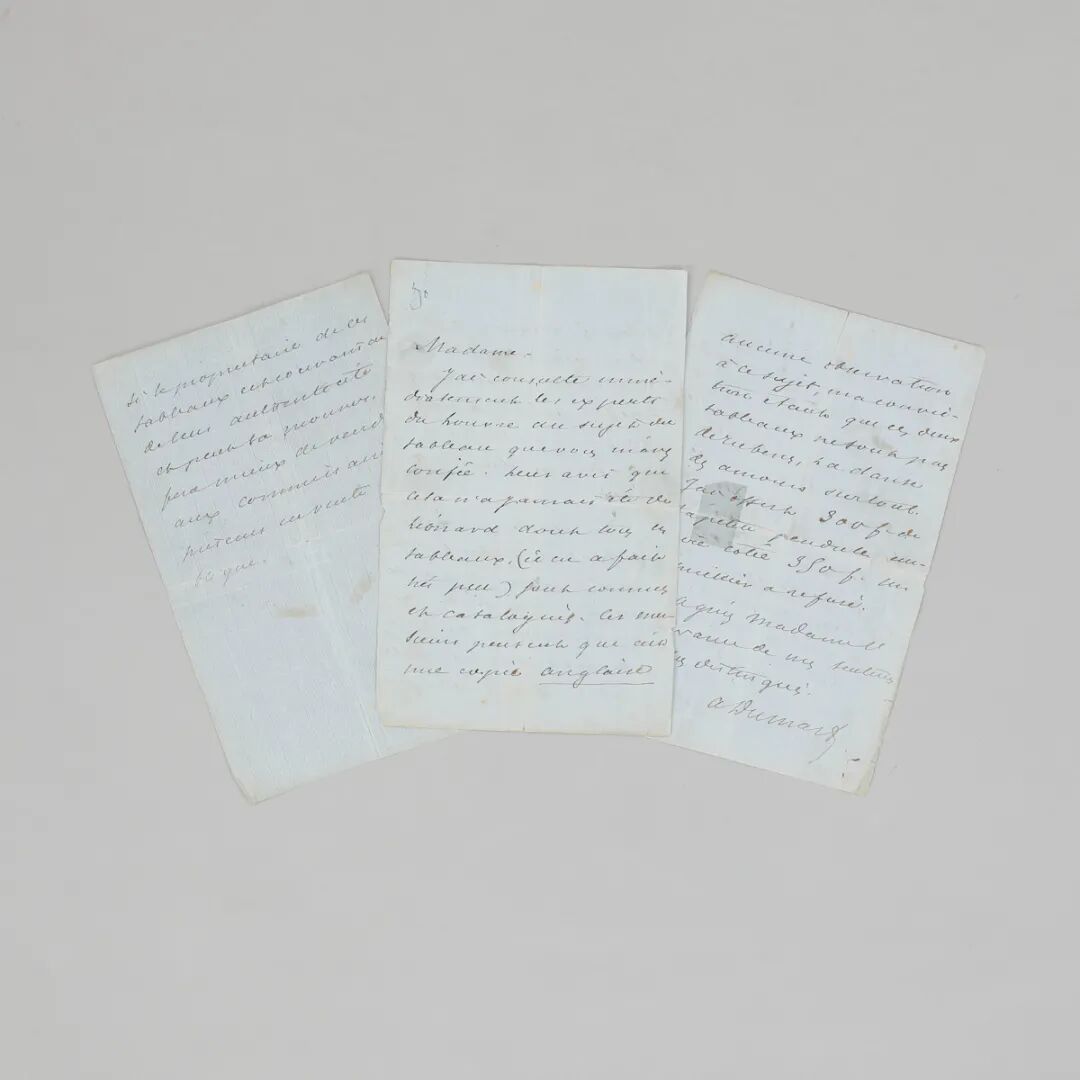 Madame.
J'ai consulté immé-
diatement les experts
du Louvre au sujet du
tableau que vous m'avez
confié. Leur avis que
cela n'a jamais été de
Léonard dont tous les
tableaux, (il en a fait
très peu) sont connus
et catalogués. Ces mes-
sieurs pensent que c'est
une copie anglaise
si le propriétaire de ces
tableaux est convaincu
de leur authenticité
et peut la prouver,
fera mieux de vendre
aux commissaires
priseurs en vente
aucune observation
à ce sujet, ma convic-
tion étant que ces deux
tableaux ne sont pas
de rubens, La danse
des amours surtout.
J'ai offert 300 f. de
la petite pendule
coté 350 f.
a refusé.
Madame
de mes
distingués.